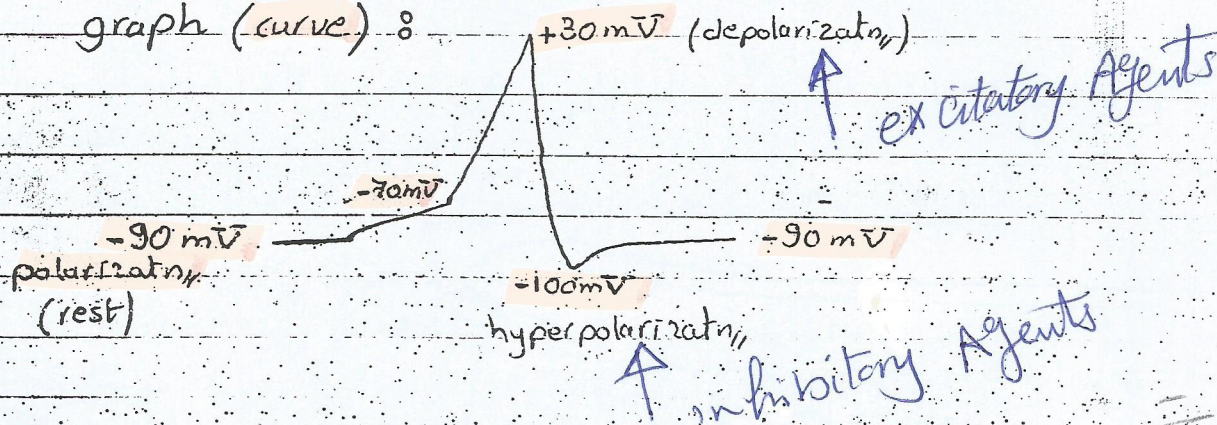 graph (curve) :
+30 mV (depolarizatn,,)
excitatory Agents
-70mV
-90 mV
-90 mV
polarizatn,,
(rest)
-100mV
hyperpolarizatn,,
inhibitory Agents